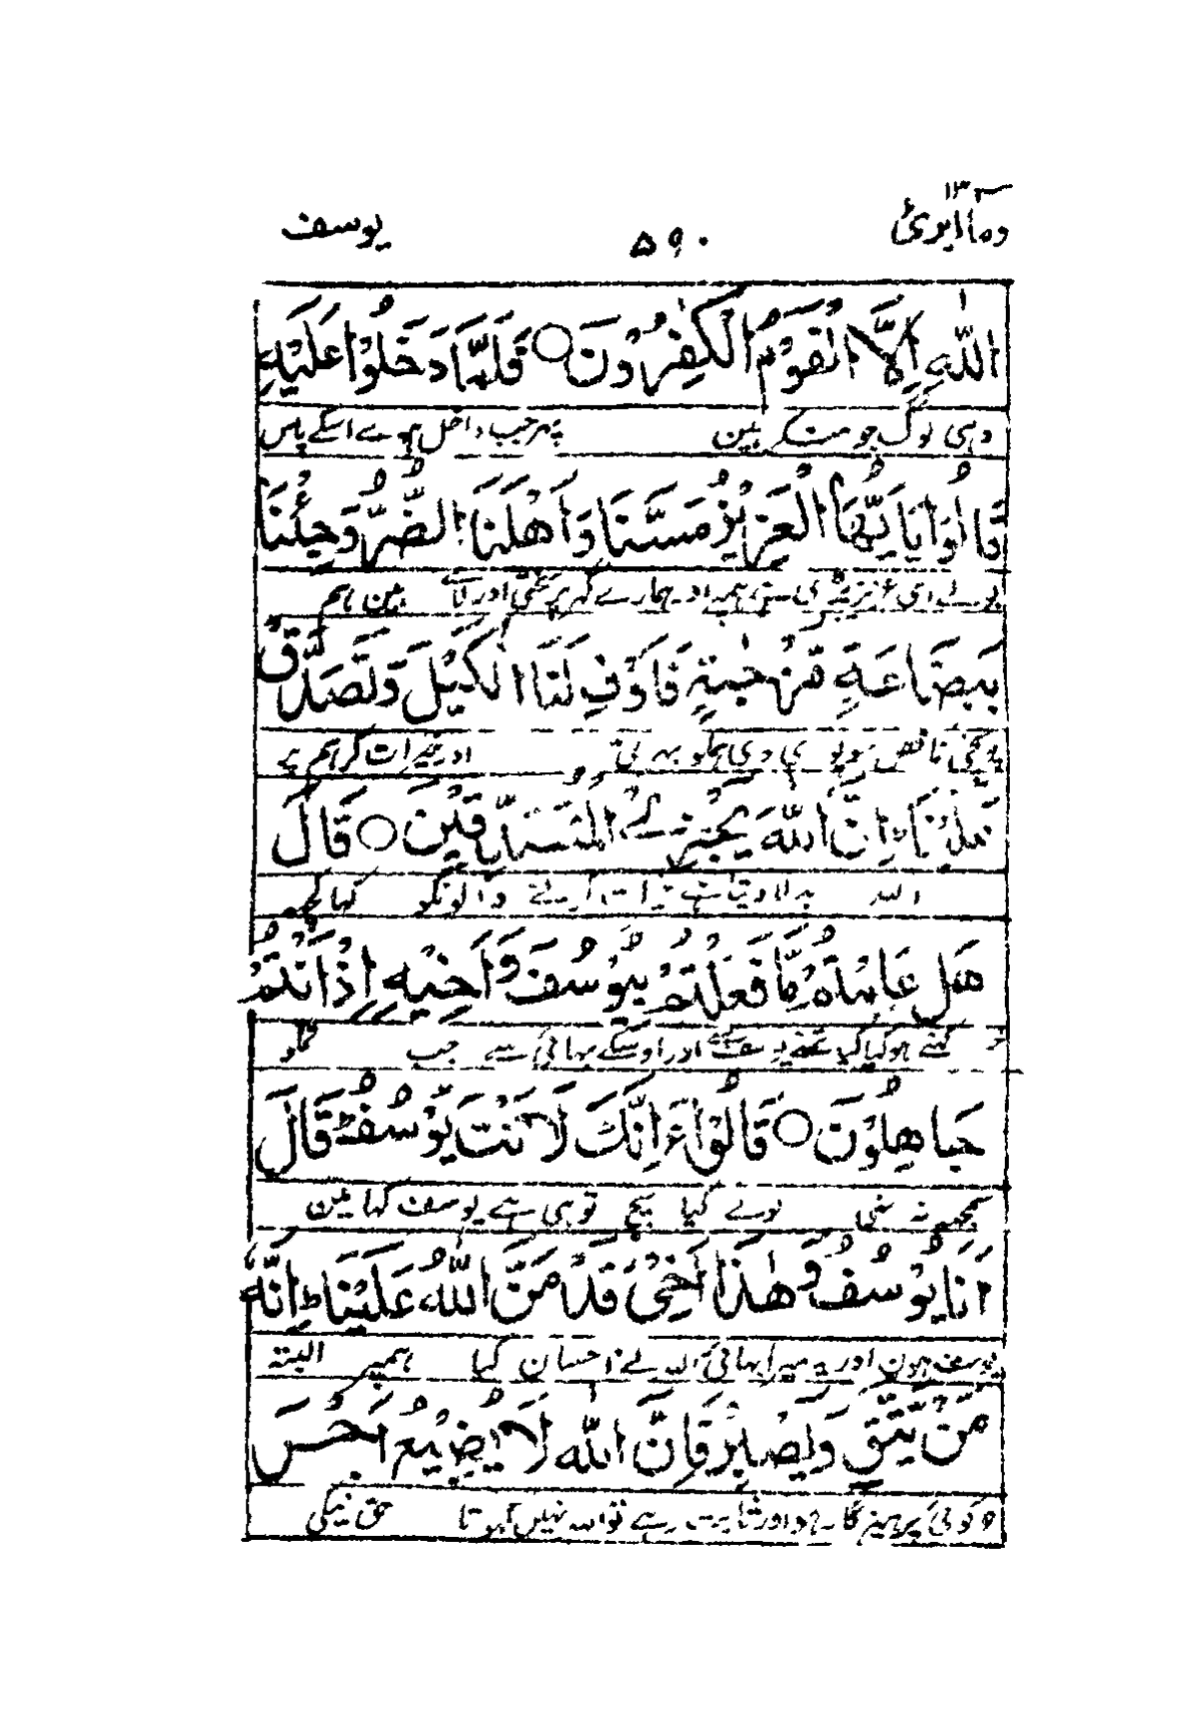 وما ابرئ ۱۳ ۵۹۰ یوسف
اللّٰهِ اِلَّا الْقَوْمُ الْكٰفِرُوْنَ ○ فَلَمَّا دَخَلُوْا عَلَيْهِ
وہی لوگ جو منکر ہین پہر جب داخل ہوے اسکے پاس
قَالُوْا يَا اَيُّهَا الْعَزِيْزُ مَسَّنَا وَاَهْلَنَا الضُّرُّ وَجِئْنَا
بولے ای عزیز پڑی ہمپر اور ہمارے گہر پر سختی اور لائے ہین ہم
بِبِضَاعَةٍ مُّزْجٰىةٍ فَاَوْفِ لَنَا الْكَيْلَ وَتَصَدَّقْ
پونجی ناقص سو پوری دی ہمکو بہرتی اور خیرات کر ہم پر
عَلَيْنَا ؕ اِنَّ اللّٰهَ يَجْزِى الْمُتَصَدِّقِيْنَ ○ قَالَ
اللہ بدلا دیتا ہے خیرات کرنے والونکو کہا کچھ
هَلْ عَلِمْتُمْ مَّا فَعَلْتُمْ بِيُوْسُفَ وَاَخِيْهِ اِذْ اَنْتُمْ
کہتے ہو کیا کیا تمنے یوسف سے اور اوسکے بہائی سے جب تمکو
جَاهِلُوْنَ ○ قَالُوْٓا ءَاِنَّكَ لَاَنْتَ يُوْسُفُ ؕ قَالَ
سمجھہ نہ تہی بولے کیا سچ توہی ہے یوسف کہا مین
اَنَا يُوْسُفُ وَهٰذَا اَخِيْ قَدْ مَنَّ اللّٰهُ عَلَيْنَا ؕ اِنَّهٗ
یوسف ہون اور یہ میرا بہائی اللہ نے احسان کیا ہمپر البتہ
مَنْ يَّتَّقِ وَيَصْبِرْ فَاِنَّ اللّٰهَ لَا يُضِيْعُ اَجْرَ
جو کوئی پرہیزگار ہو اور ثابت رہے تو اللہ نہیں کہوتا حق نیکی